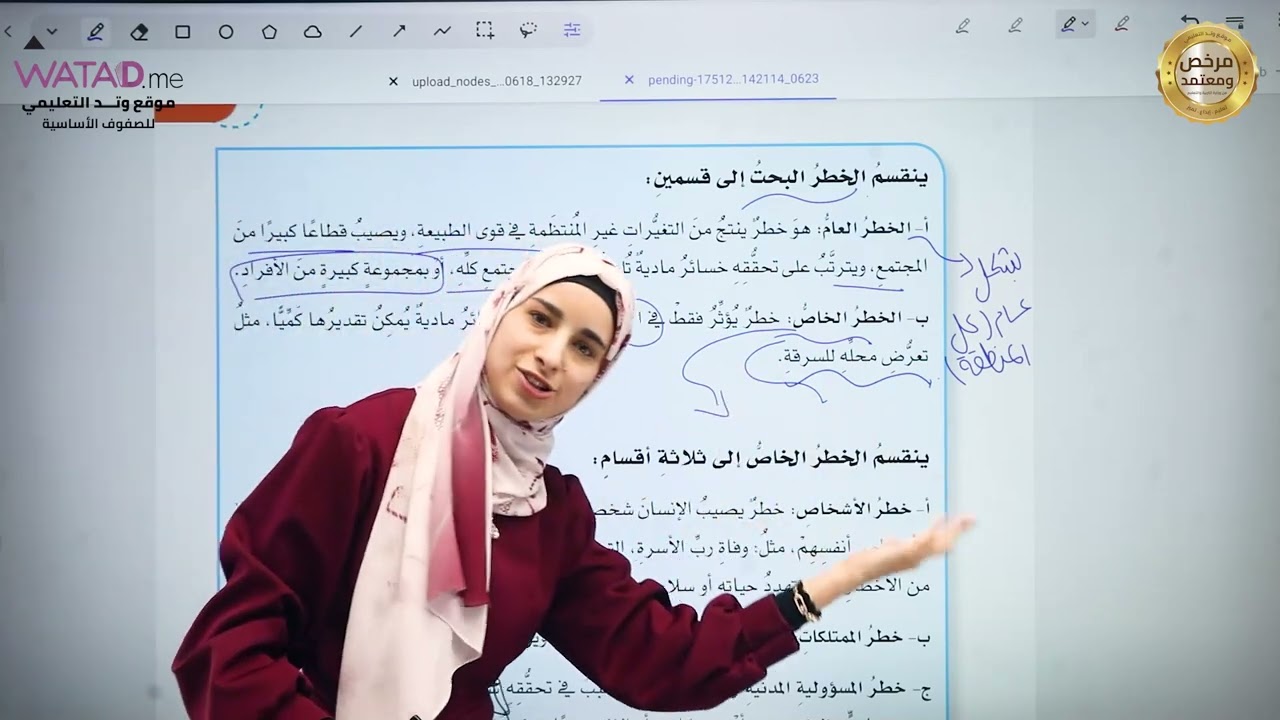 WATAD.me
موقع وتد التعليمي
للصفوف الأساسية
upload_nodes_...0618_132927
pending-17512...142114_0623
مرخص
ومعتمد
ينقسمُ الخطرُ البحتُ إلى قسمينِ:
أ- الخطرُ العامُّ: هوَ خطرٌ ينتجُ منَ التغيُّراتِ غيرِ المُنتظَمةِ في قوى الطبيعةِ، ويصيبُ قطاعًا كبيرًا منَ
المجتمعِ، ويترتَّبُ على تحقُّقِهِ خسائرُ ماديةٌ كلِّهِ، أو بمجموعةٍ كبيرةٍ منَ الأفرادِ.
ب- الخطرُ الخاصُّ: خطرٌ يُؤثِّرُ فقطْ في ماديةٌ يُمكِنُ تقديرُها كمِّيًّا، مثلُ
تعرُّضِ محلِّهِ للسرقةِ.
بشكل
عام (كل
المنطقة)
ينقسمُ الخطرُ الخاصُّ إلى ثلاثةِ أقسامٍ:
أ- خطرُ الأشخاصِ: خطرٌ يصيبُ الإنسانَ
أنفسِهِمْ، مثلُ: وفاةِ ربِّ الأسرةِ،
من حياته أو
ب- خطرُ الممتلكاتِ
ج- خطرُ المسؤوليةِ المدنيةِ في تحقُّقِهِ